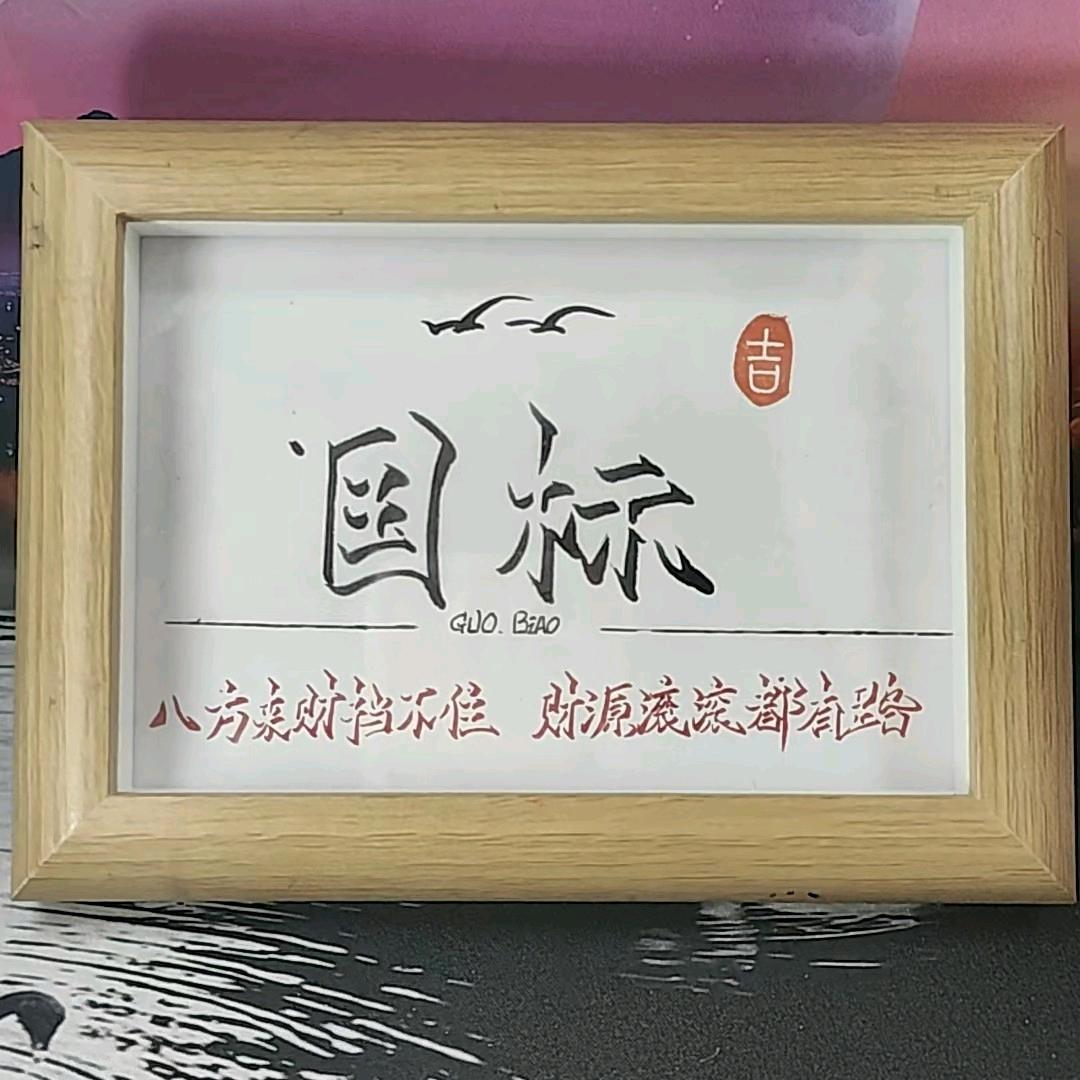 吉
国标
GUO. BiAO
八方来财挡不住 财源滚滚都有路